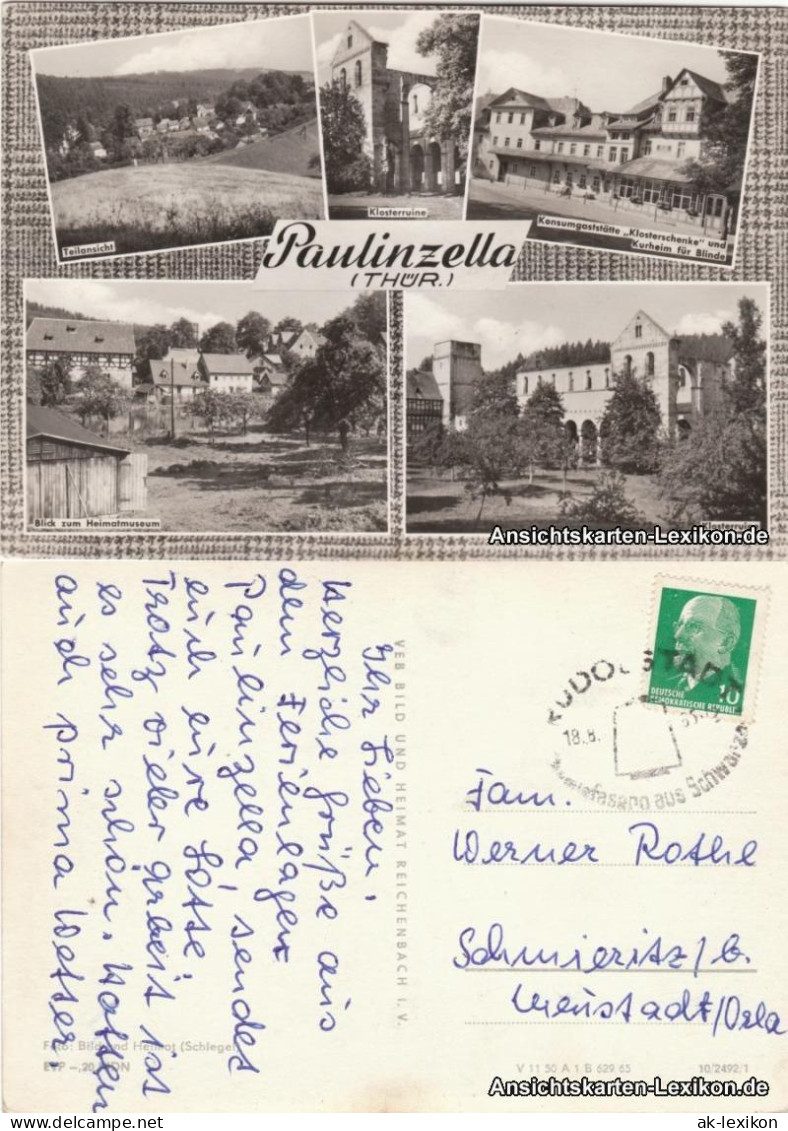 Teilansicht
Klosterruine
Konsumgaststätte „Klosterschenke" und
Kurheim für Blinde
Paulinzella
(THÜR.)
Blick zum Heimatmuseum
Klosterruine
Ansichtskarten-Lexikon.de
Ihr Lieben,
Herzliche Grüße aus
dem Ferienlager
Paulinzella sendet
euch eure Lotte.
Trotz vieler Arbeit ist
es sehr schön. Hatten
auch prima Wetter.
VEB BILD UND HEIMAT REICHENBACH I. V.
DEUTSCHE
DEMOKRATISCHE REPUBLIK
10
RUDOLSTADT
18.8.
aus Schwarza
Fam.
Werner Rothe
Schmieritz/b.
Neustadt/Orla
Foto: Bild und Heimat (Schlegel)
EVP –,20 MDN
V 11 50 A 1/B 629/65
10/2492/1
Ansichtskarten-Lexikon.de
delcampe.net
ak-lexikon